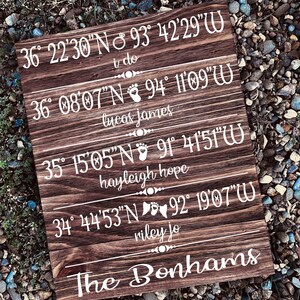 36° 22'30"N 93° 42'29"W
i do
36° 08'07"N 94° 11'09"W
lucas james
35° 15'05"N 91° 41'51"W
hayleigh hope
34° 44'53"N 92° 19'07"W
riley jo
The Bonhams